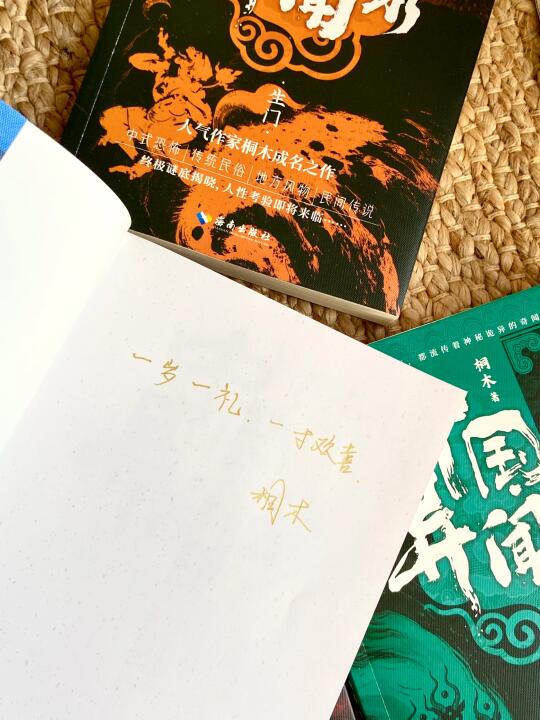 闻录
·生门·
人气作家桐木成名之作
中式恐怖|传统民俗|地方风物|民间传说
终极谜底揭晓，人性考验即将来临……
海南出版社
一岁一礼，一寸欢喜.
桐木
都流传着神秘诡异的奇闻
桐木 著
国
异闻